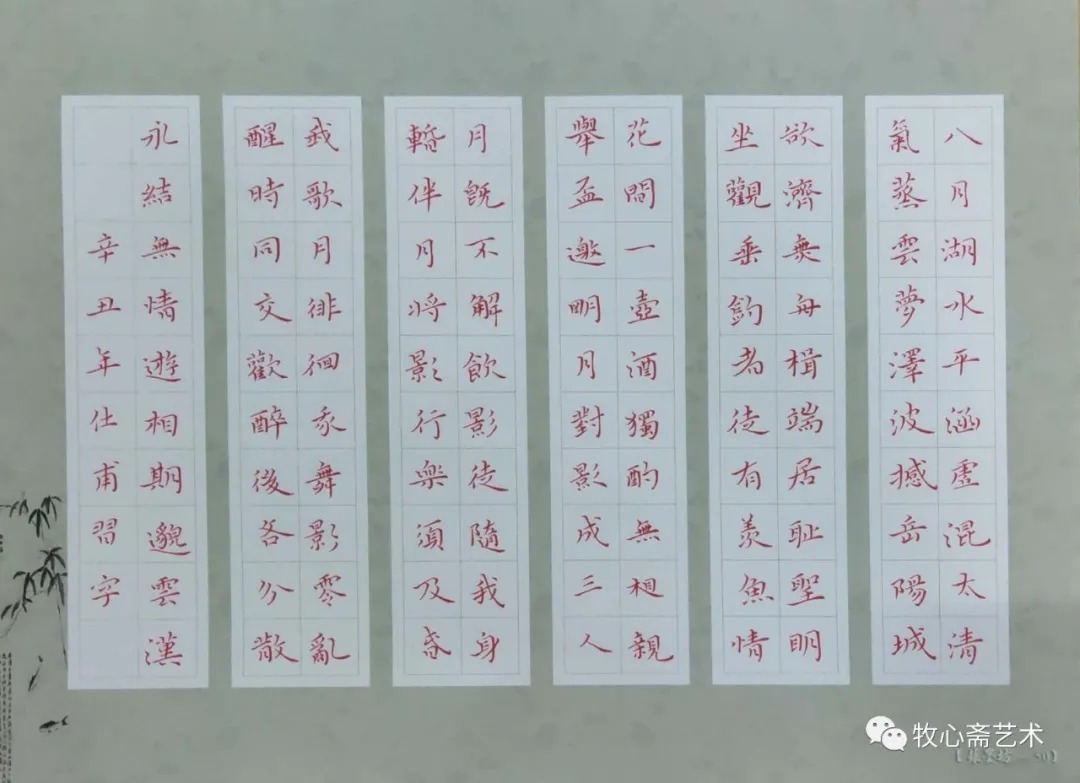 八月湖水平涵虛混太清
氣蒸雲夢澤波撼岳陽城
欲濟無舟楫端居耻聖明
坐觀垂釣者徒有羨魚情
花間一壺酒獨酌無相親
舉盃邀明月對影成三人
月旣不解飲影徒隨我身
暫伴月將影行樂須及春
我歌月徘徊我舞影零亂
醒時同交歡醉後各分散
永結無情遊相期邈雲漢
辛丑年仕甫習字
牧心斋艺术